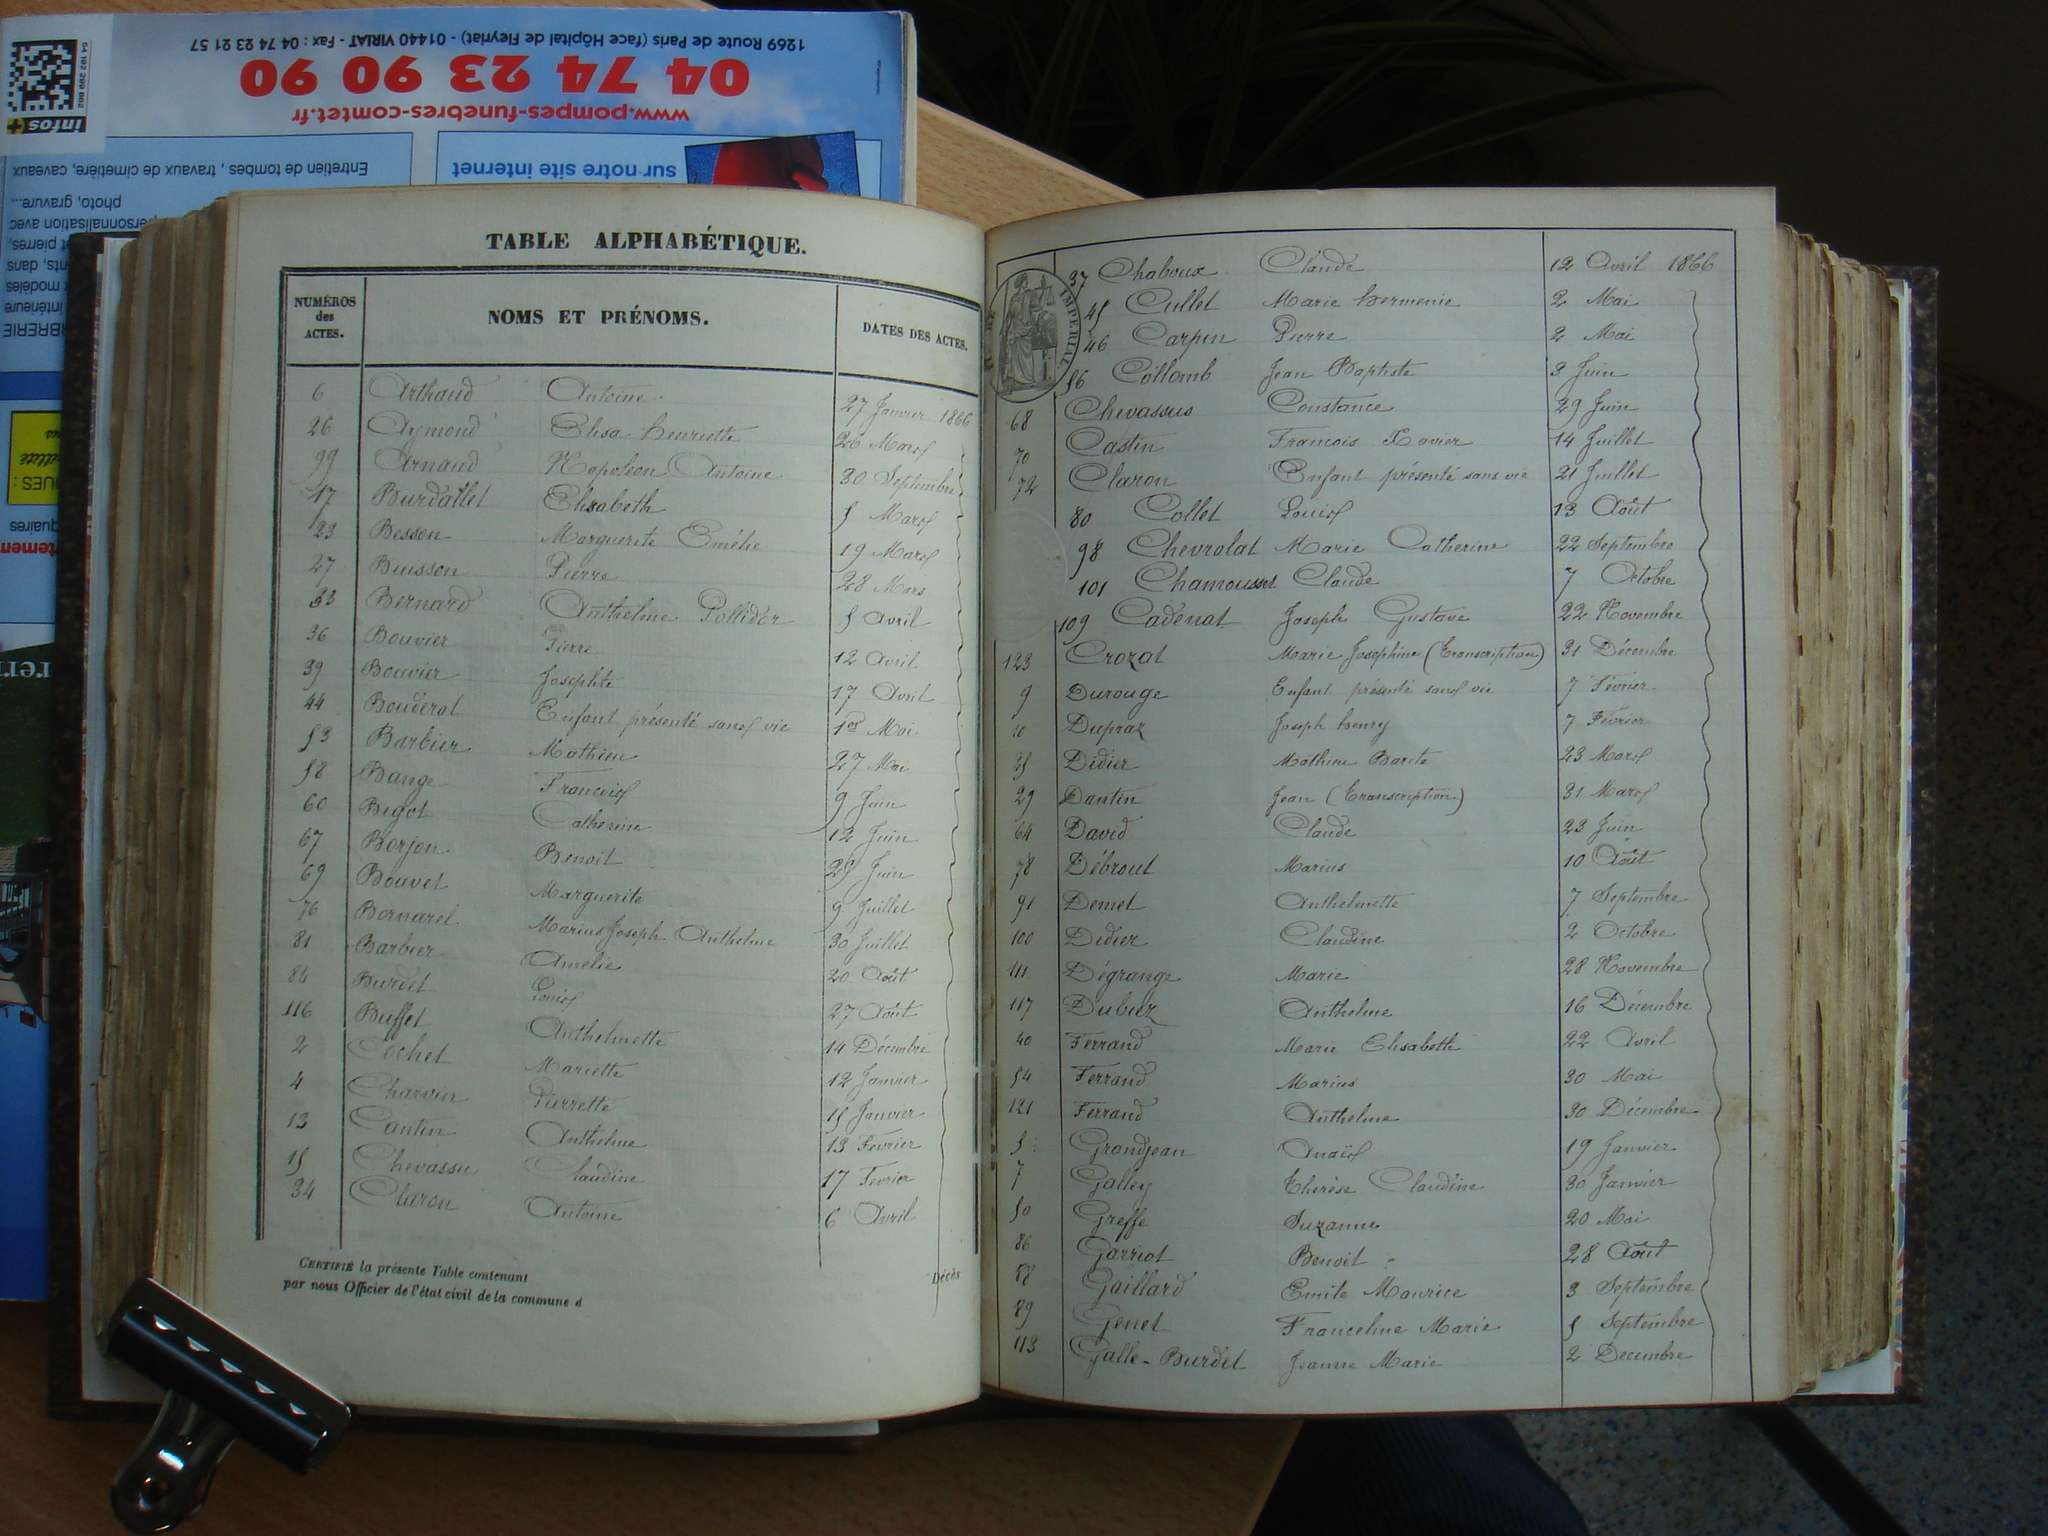 1269 Route de Paris (face Hôpital de Fleyriat) - 01440 VIRIAT - Fax : 04 74 23 21 57
04 74 23 90 90
www.pompes-funebres-comtet.fr
infos+
sur notre site internet
Entretien de tombes , travaux de cimetière, caveaux
photo, gravure...
personnalisation avec
TABLE ALPHABÉTIQUE.
NUMÉROS des ACTES. NOMS ET PRÉNOMS. DATES DES ACTES.
6 Arthaud Antoine 27 Janvier 1866
26 Aymond Elisa henriette 26 Mars
99 Arnaud Napoleon Antoine 30 Septembre
17 Burdallet Elisabeth 5 Mars
23 Besson Marguerite Emélie 19 Mars
27 Buisson Pierre 28 Mars
33 Bernard Anthelme Pollidor 5 Avril
36 Bouvier Pierre 12 Avril
39 Bouvier Josephte 17 Avril
44 Bouderat Enfant présenté sans vie 1er Mai
53 Barbier Mathieu 27 Mai
58 Bange François 9 Juin
60 Bigot Catherine 12 Juin
67 Borjon Benoit 29 Juin
69 Bouvet Marguerite 9 Juillet
76 Bornarel Marius Joseph Anthelme 30 Juillet
81 Barbier Amelie 20 Août
84 Burdet Louis 27 Août
116 Buffet Anthelmette 14 Décembre
2 Cochet Mariette 12 Janvier
4 Charvin Pierrette 15 Janvier
13 Cantin Anthelme 13 Fevrier
15 Chevassu Claudine 17 Fevrier
34 Claron Antoine 6 Avril
CERTIFIÉ la présente Table contenant Décès
par nous Officier de l'état civil de la commune d
IMPERIAL
37 Chaboux Claude 12 Avril 1866
45 Cullet Marie hermenie 2 Mai
46 Carpin Pierre 2 Mai
56 Collomb Jean Baptiste 3 Juin
68 Chevassus Constance 29 Juin
70 Castin Francois Xavier 14 Juillet
72 Claron Enfant présenté sans vie 21 Juillet
80 Collet Louis 13 Août
98 Chevrolat Marie Catherine 22 Septembre
101 Chamousset Claude 7 Octobre
109 Cadenat Joseph Gustave 22 Novembre
123 Crozat Marie Josephine (Transcription) 31 Décembre
9 Durouge Enfant présenté sans vie 7 Février
10 Dupraz Joseph henry 7 Fevrier
25 Didier Mathieu 23 Mars
29 Dantin Jean (Transcription) 31 Mars
64 David Claude 23 Juin
78 Débrout Marius 10 Août
91 Demet Anthelmette 7 Septembre
100 Didier Claudine 2 Octobre
111 Dégrange Marie 28 Novembre
117 Dubiez Anthelme 16 Décembre
40 Ferrand Marie Elisabeth 22 Avril
54 Ferrand Marius 30 Mai
121 Ferrand Anthelme 30 Décembre
5 Grandjean Anaïs 19 Janvier
7 Galley Therèse Claudine 30 Janvier
50 Greffe Suzanne 20 Mai
86 Garriot Benoit 28 Août
88 Gaillard Emile Maurice 3 Septembre
89 Genet Franceline Marie 5 Septembre
113 Galle-Burdet Jeanne Marie 2 Decembre